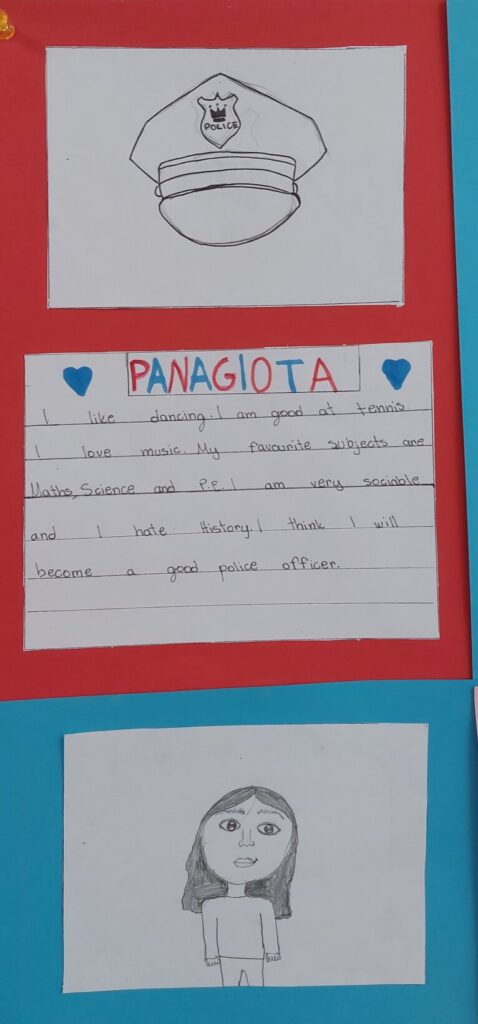 POLICE
PANAGIOTA
I like dancing. I am good at tennis.
I love music. My favourite subjects are
Maths, Science and P.E. I am very sociable
and I hate History. I think I will
become a good police officer.